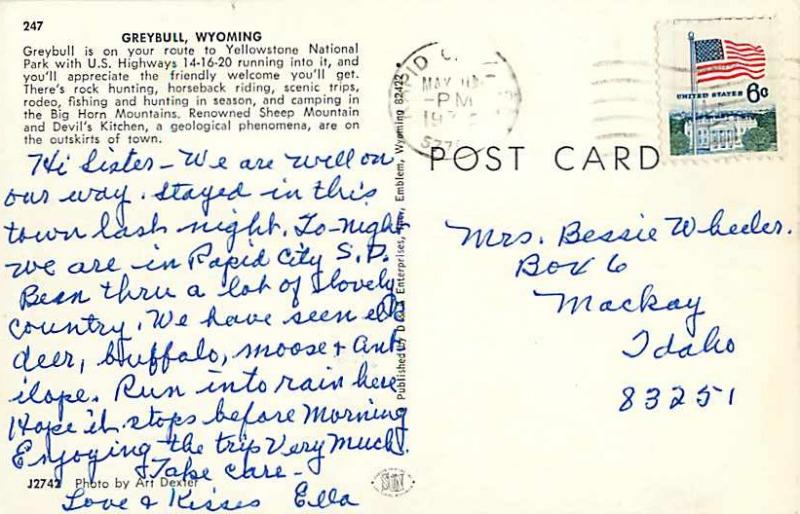 247
GREYBULL, WYOMING
Greybull is on your route to Yellowstone National
Park with U.S. Highways 14-16-20 running into it, and
you'll appreciate the friendly welcome you'll get.
There's rock hunting, horseback riding, scenic trips,
rodeo, fishing and hunting in season, and camping in
the Big Horn Mountains. Renowned Sheep Mountain
and Devil's Kitchen, a geological phenomena, are on
the outskirts of town.
Hi Sister - We are well on
our way. stayed in this
town last night. To-night
we are in Rapid City S.D.
Bean thru a lot of lovely
country. We have seen elk
deer, buffalo, moose + ant
ilope. Run into rain here
Hope it stops before Morning
Enjoying the trip Very Much.
Take care -
J2742 Photo by Art Dexter
Love & Kisses Ella
Published by Enterprises, Emblem, Wyoming 82422
RAPID
MAY
-PM
UNITED STATES 6¢
POST CARD
Mrs. Bessie Wheeler.
Box 6
Mackay
Idaho
83251